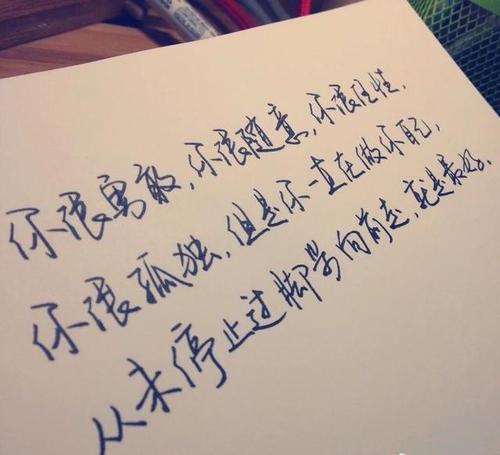 你很勇敢,你很随意,你很任性,
你很孤独,但是你一直在做你自己,
从未停止过脚步向前走,就是最好。